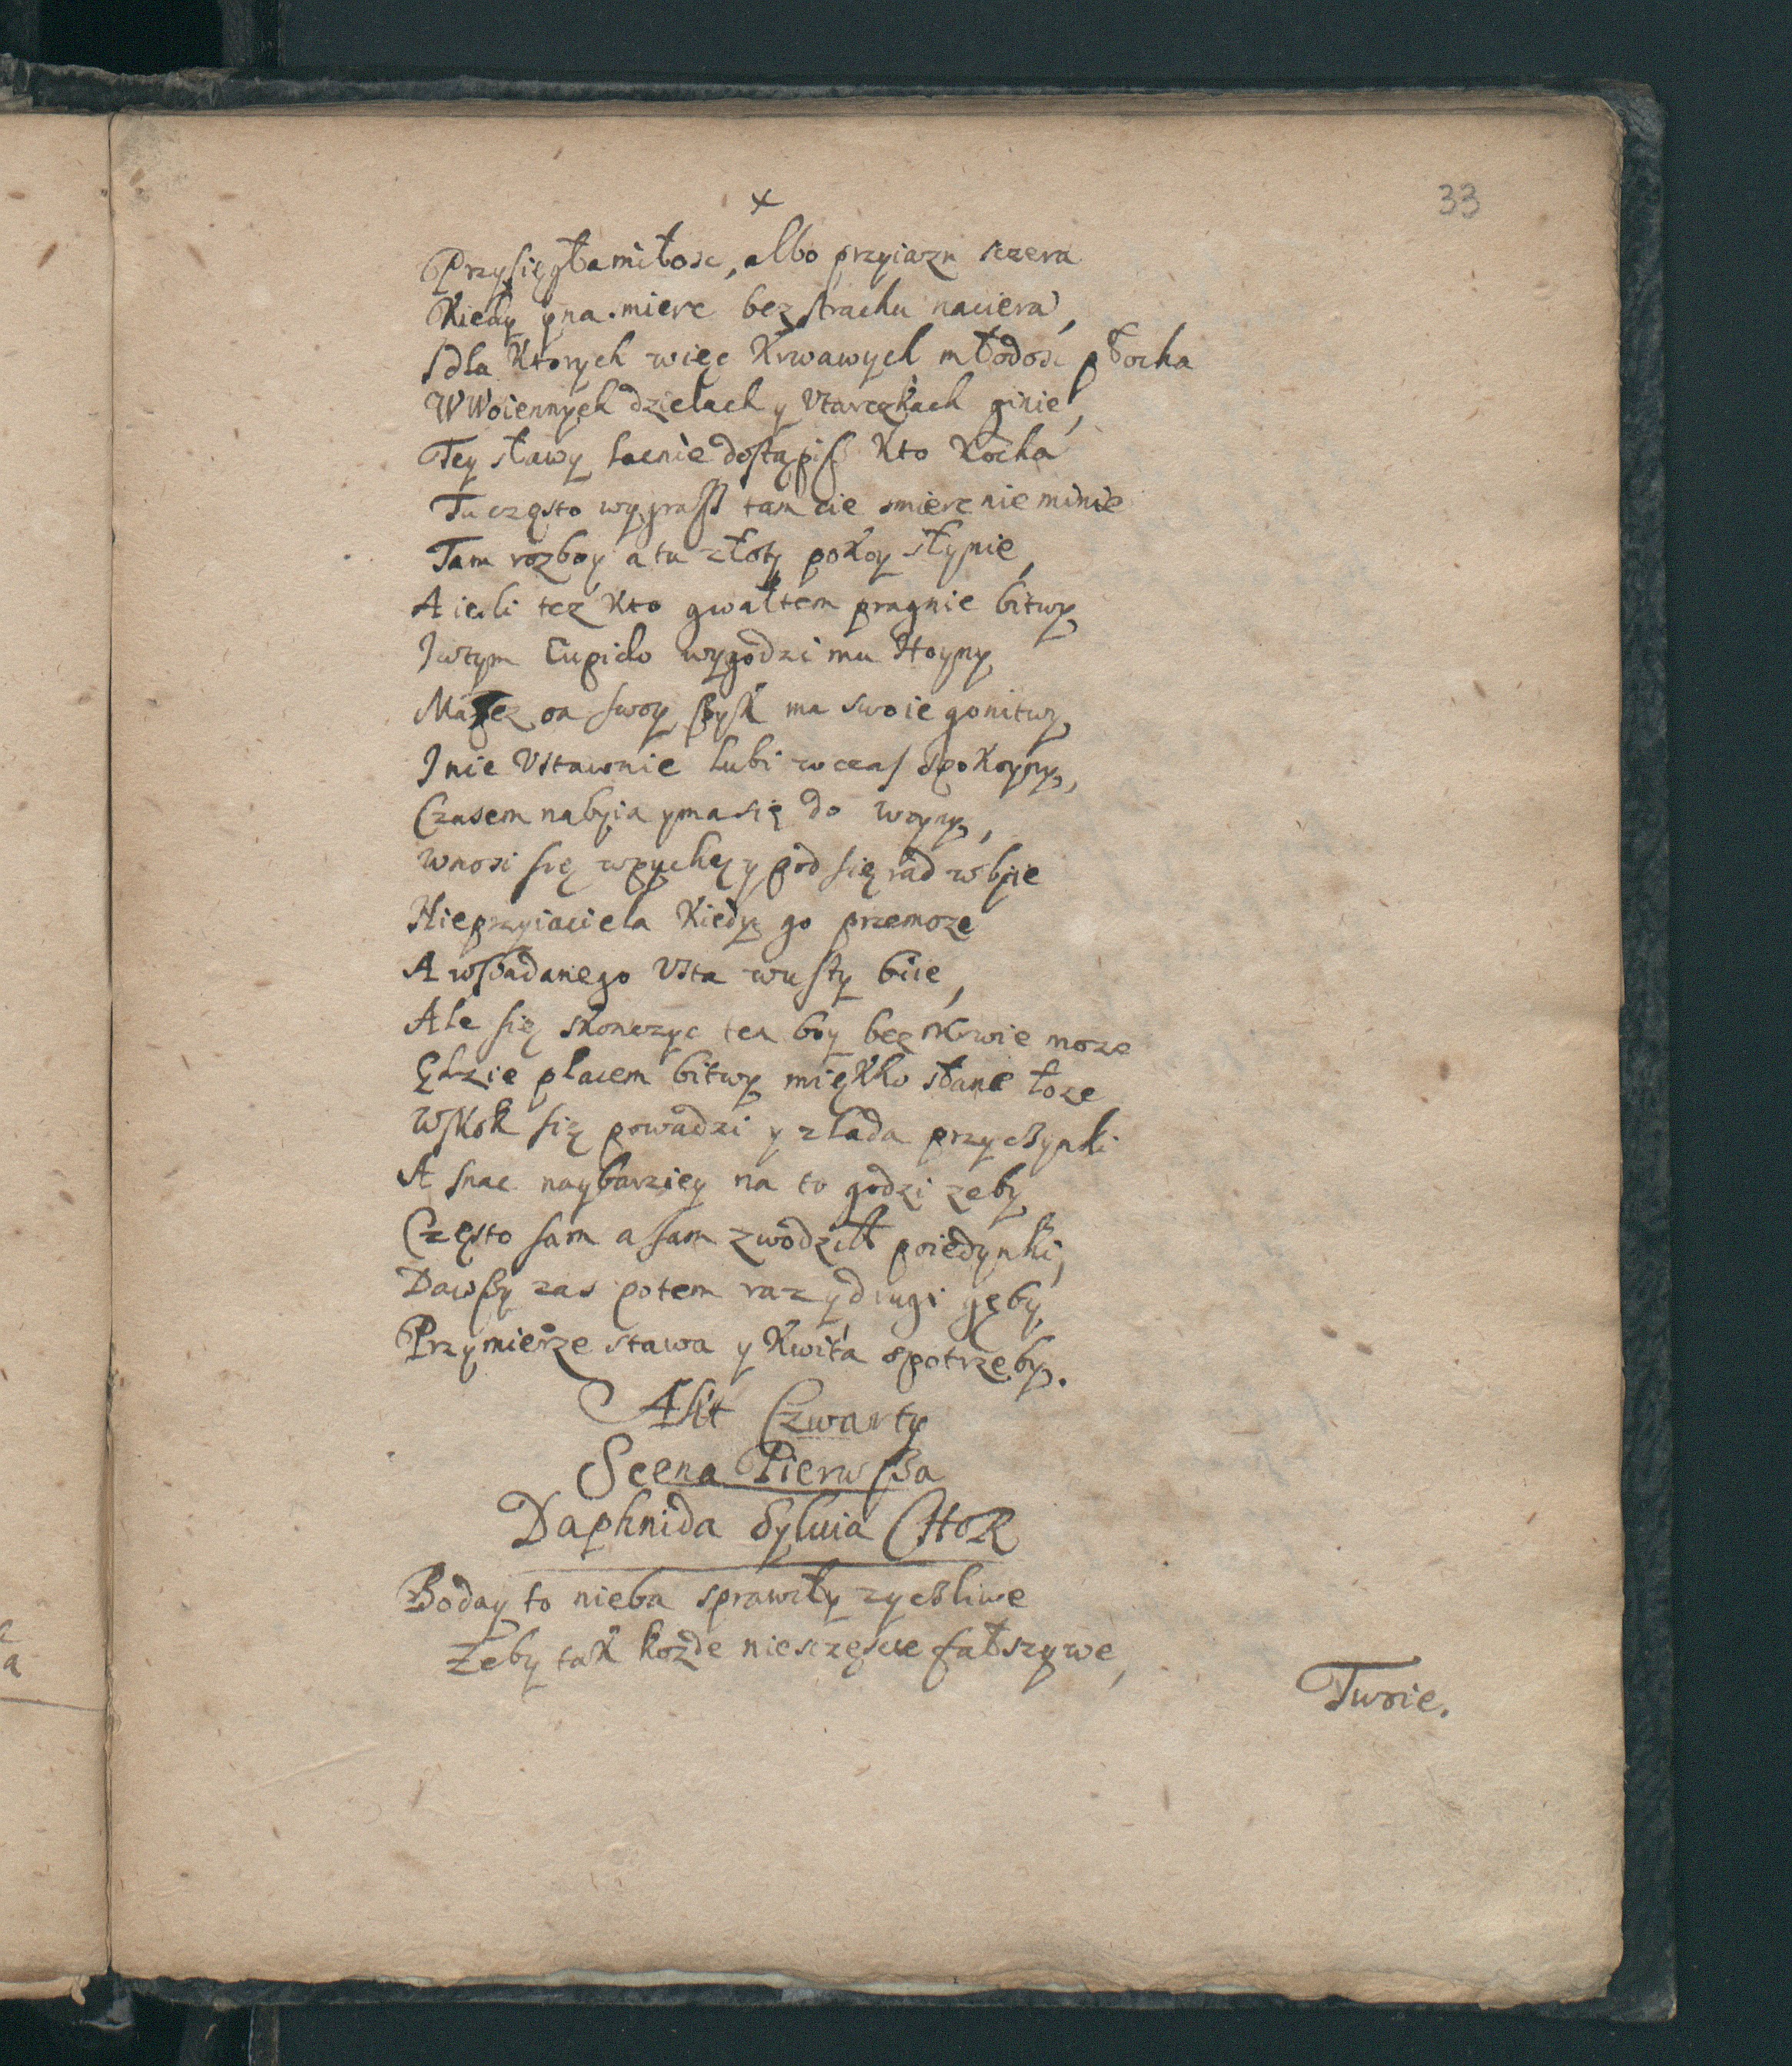 x
33
Przysięgła miłosc, albo przyiazn sczera
Kiedy y na smierc bez strachu naciera,
Idla Ktorych więc Krwawych młodosc płocha
W Woiennych dziełach y Utarczkach ginie,
Tey sławy lacnie dostąpiß Kto Kocha
Tu często wygraß tam cie smierc nie minie
Tam rozboy a tu złoty pokoy słynie,
A iesli tez Kto gwałtem pragnie bitwy
I wtym Cupido wygodzi mu Hoyny
Ma tez on swoy ßyk ma swoie gonitwy
I nie Ustawnie lubi wczas spokoyny,
Czasem nabyia yma się do woyny,
Wnosi się wpychę y pod się rad wbije
Nieprzyiaciela Kiedy go przemoze
A wßadanego Usta w usty biie,
Ale się skonczyc ten boy bez Krwie moze
Gdzie placem bitwy miękko słane łoze
Wskok się powadzi y z lada przyczynki
A snac naybarziey na to godzi zeby
Często sam a sam zwodził poiedynki,
Dawßy zas potem raz y drugi gęby
Przymierze stawa y Kwita spotrzeby.
Akt Czwarty
Scena Pierwßa
Daphnida Sylvia CHOR
Boday to nieba sprawiły zyczliwe
Zeby tak kozde niesczęscie fałszywe,
Twoie.